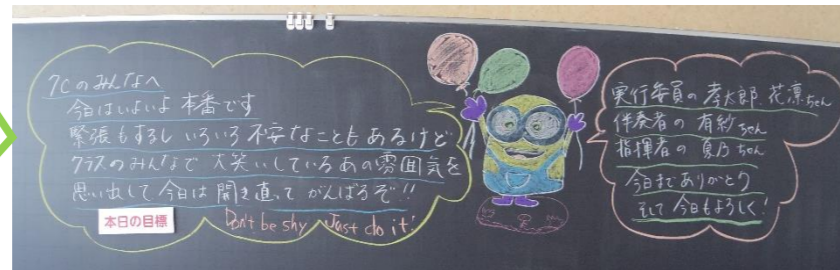 7Cのみんなへ
今日はいよいよ本番です
緊張もするし いろいろ不安なこともあるけど
クラスのみんなで大笑いしているあの雰囲気を
思い出して今日は開き直ってがんばろぞ!!
本日の目標
Don't be shy Just do it!
実行委員の孝太郎、花凛ちゃん
伴奏者の有紗ちゃん
指揮者の夏乃ちゃん
今日までありがとう
そして今日もよろしく!